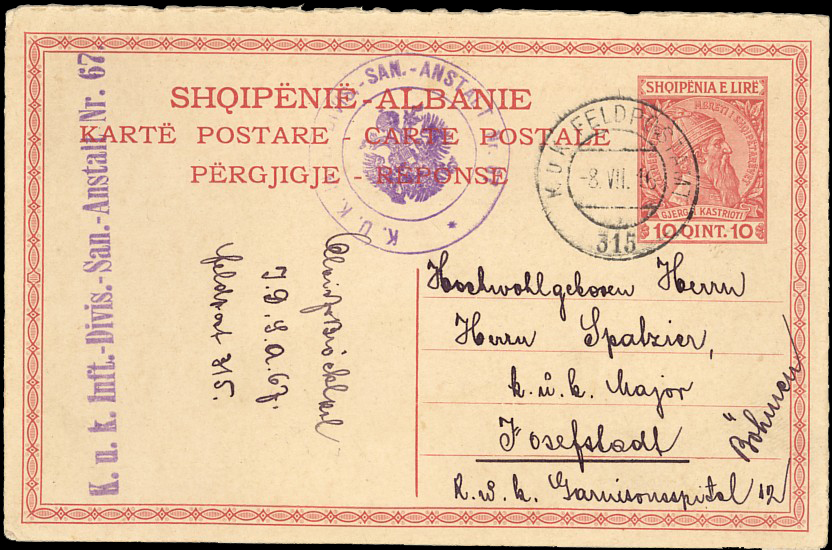 SHQIPËNIË-ALBANIE
KARTË POSTARE - CARTE POSTALE
PËRGJIGJE - RÉPONSE
SHQIPËNIA E LIRË
GJERGJ KASTRIOTI
10 QINT. 10
K.U.K. FELDPOSTAMT
-8.VII.16
315
K.U.K. -SAN.-ANSTALT Nr.
K. u. k. Inft.-Divis.-San.-Anstalt Nr. 67.
J.D.S.A. 67.
Feldpost 315.
Hochwohlgeboren Herrn
Herrn Spalzier,
k.u.k. Major
Josefstadt
Böhmen
k.u.k. Garnisonsspital 12